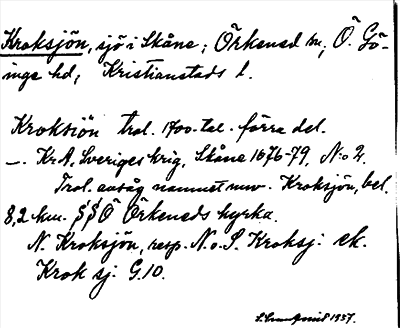 Kroksjön, sjö i Skåne; Örkened sn, Ö. Gö-
inge hd, Kristianstads l.
Kroksiön trol. 1700-tal. förra del.
—. KrA, Sveriges krig, Skåne 1676-79, N:o 2.
Trol. avsåg namnet nuv. Kroksjön, bel.
8,2 km. SSÖ Örkeneds kyrka.
N. Kroksjön, resp. N. o. S. Kroksj: ek.
Krok sj: G.10.
1957.